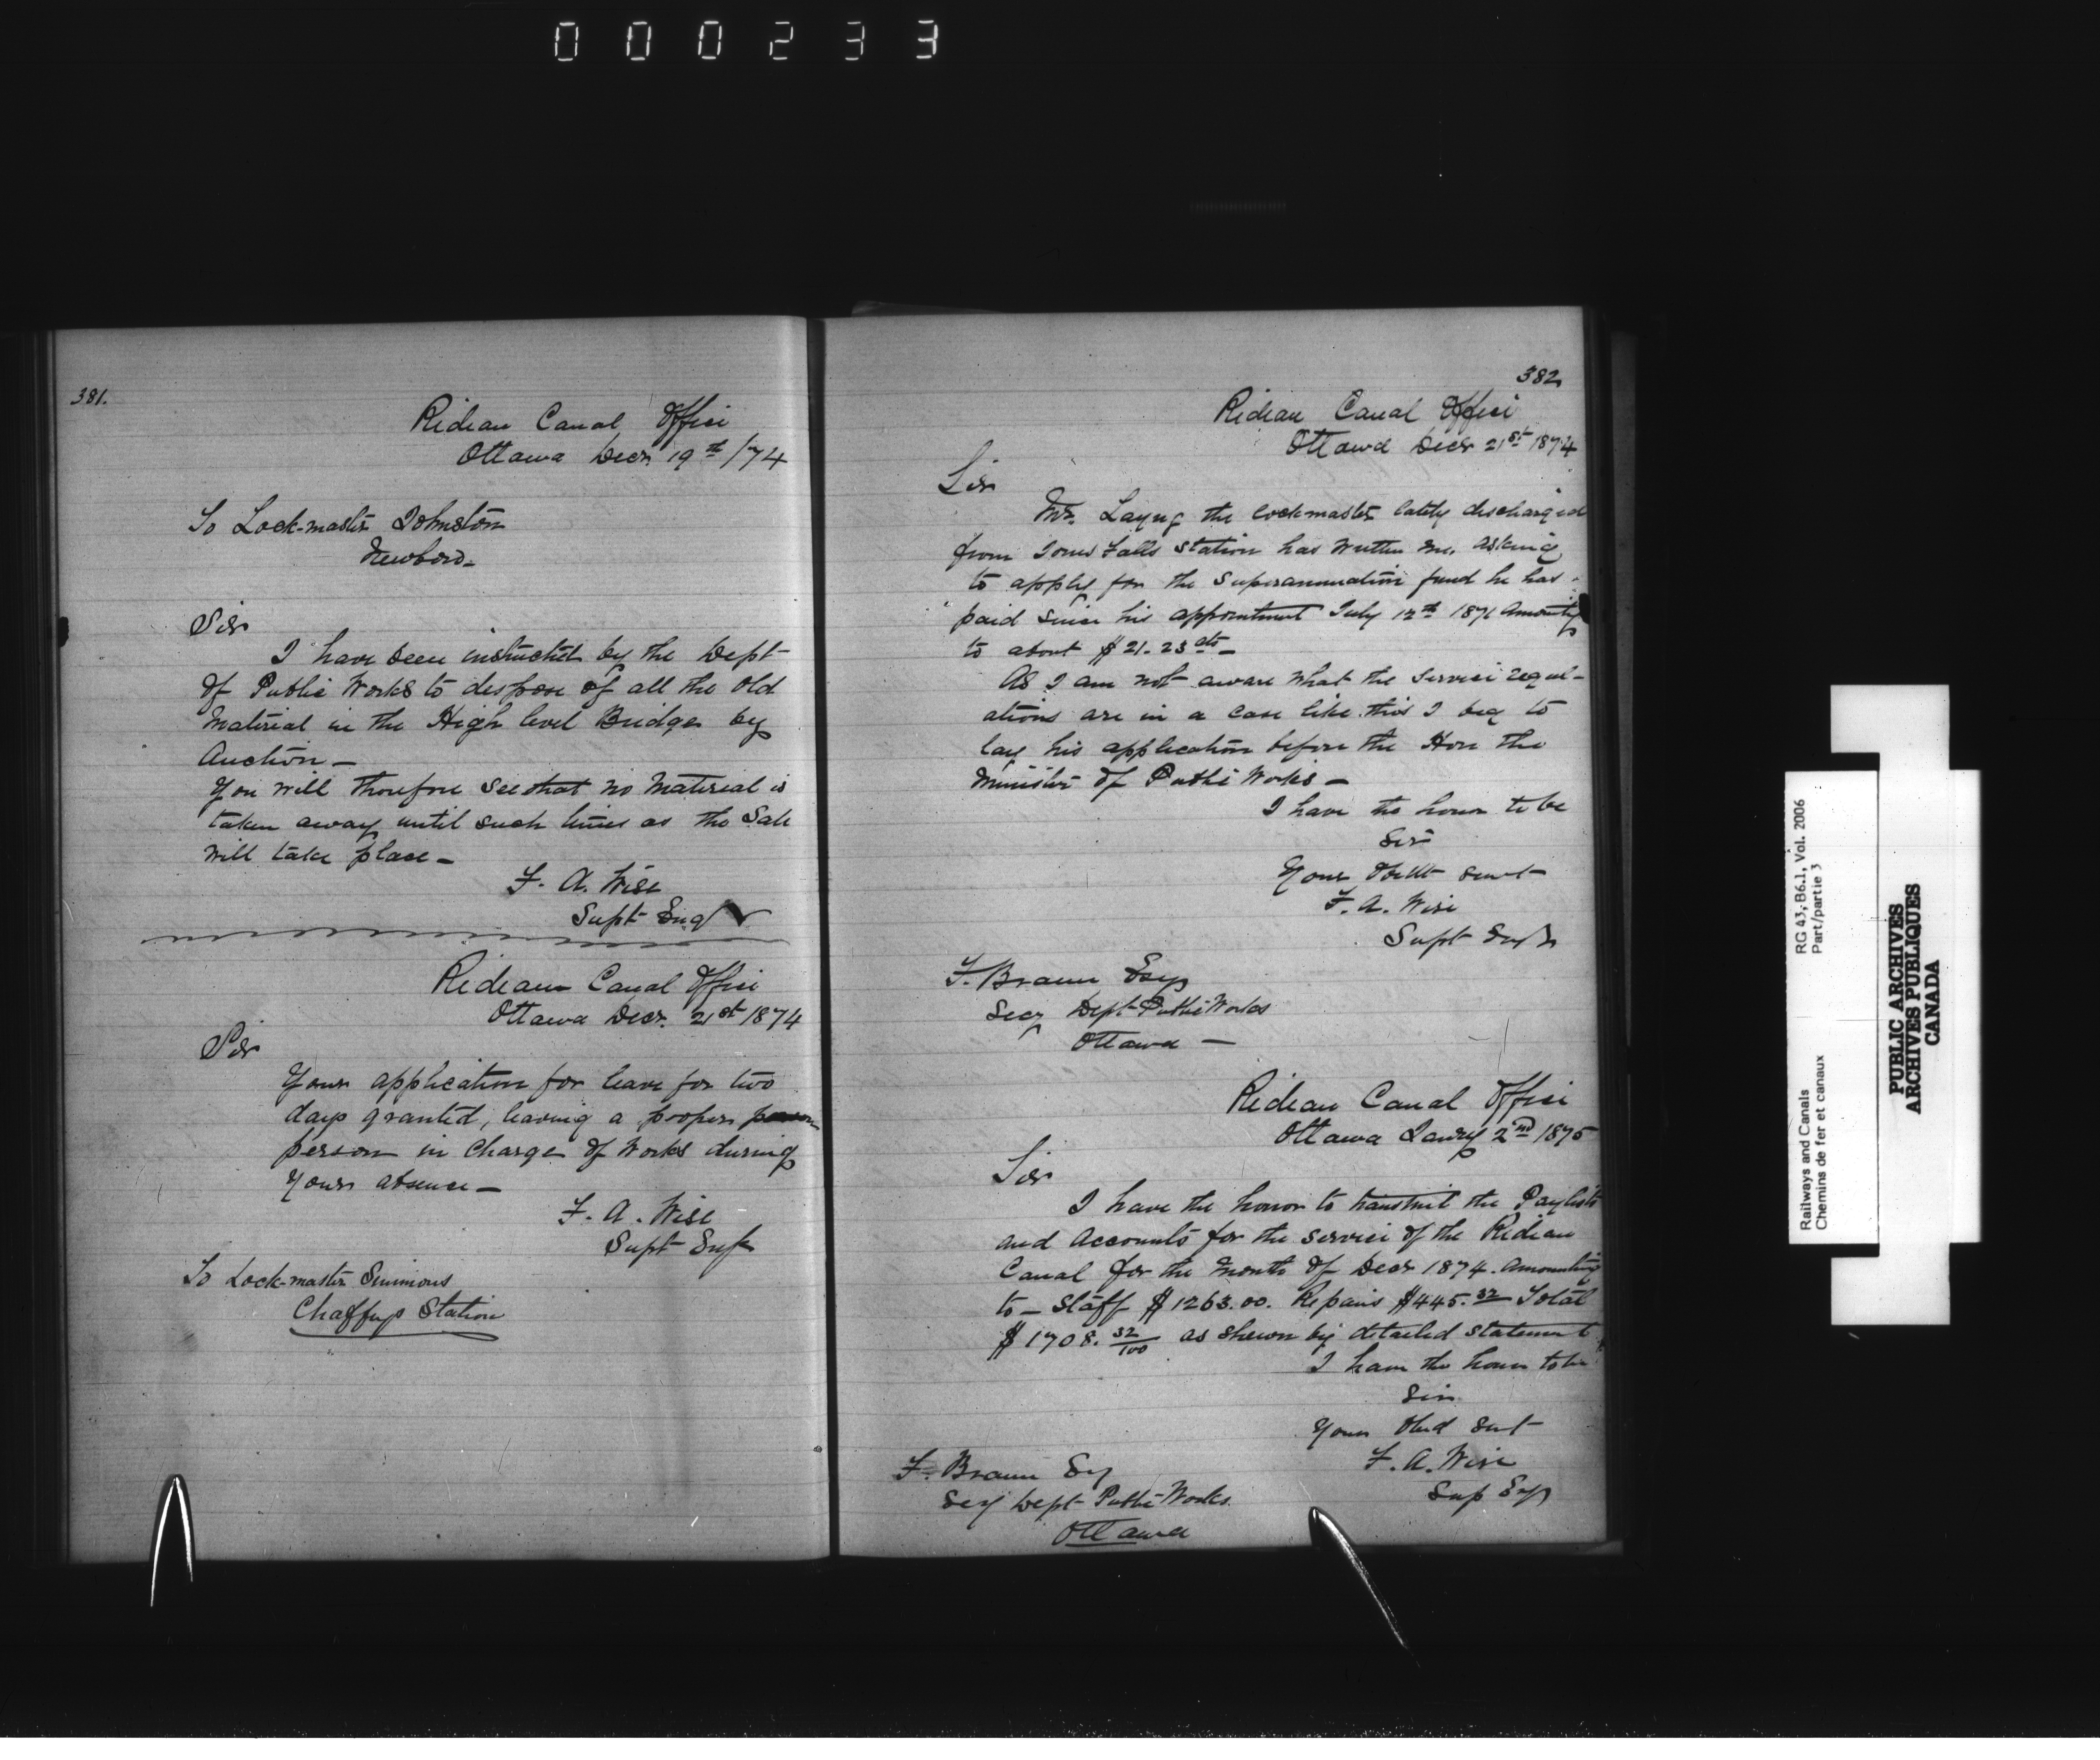 000233
381.
Rideau Canal Office
Ottawa Decr 19th /74
To Lock-master Johnston
Newboro-
Sir
I have been instructed by the Dept
of Public Works to dispose of all the old
Material in the High level Bridges by
Auction -
You will therefore see that no Material is
taken away until such times as the Sale
will take place -
F. A. Wise
Supt Eng
Rideau Canal Office
Ottawa Decr. 21st 1874
Sir
Your application for leave for two
days granted, leaving a proper
person in charge of Works during
Your absence -
F. A. Wise
Supt Engr
To Lock-master Simmons
Chaffeys Station
382
Rideau Canal Office
Ottawa Decr 21st 1874
Sir
Mr. Layng the lockmaster lately discharged
from Jones Falls Station has written me, asking
to apply for the Superannuation fund he has
paid since his appointment July 12th 1871 Amounting
to about $21.23 cts -
As I am not aware what the Service regul-
ations are in a case like this I beg to
lay his application before the Hon the
Minister of Public Works -
I have the honor to be
Sir
Your Obdt Servt
F. A. Wise
Supt Engr
F. Braun Esq
Secy Dept Public Works
Ottawa -
Rideau Canal Office
Ottawa Jany 2nd 1875
Sir
I have the honor to transmit the Paylists
and Accounts for the service of the Rideau
Canal for the Month of Decr 1874. Amounting
to - Staff $1263.00. Repairs $445.32 Total
$1708. 32/100 as shewn by detailed statement
I have the honor to be
Sir
Your Obed Sert
F. A. Wise
Sup Eng
F. Braun Esq
Secy Dept Public Works
Ottawa
Railways and Canals
Chemins de fer et canaux
RG 43, B6.1, Vol. 2006
Part/partie 3
PUBLIC ARCHIVES
ARCHIVES PUBLIQUES
CANADA